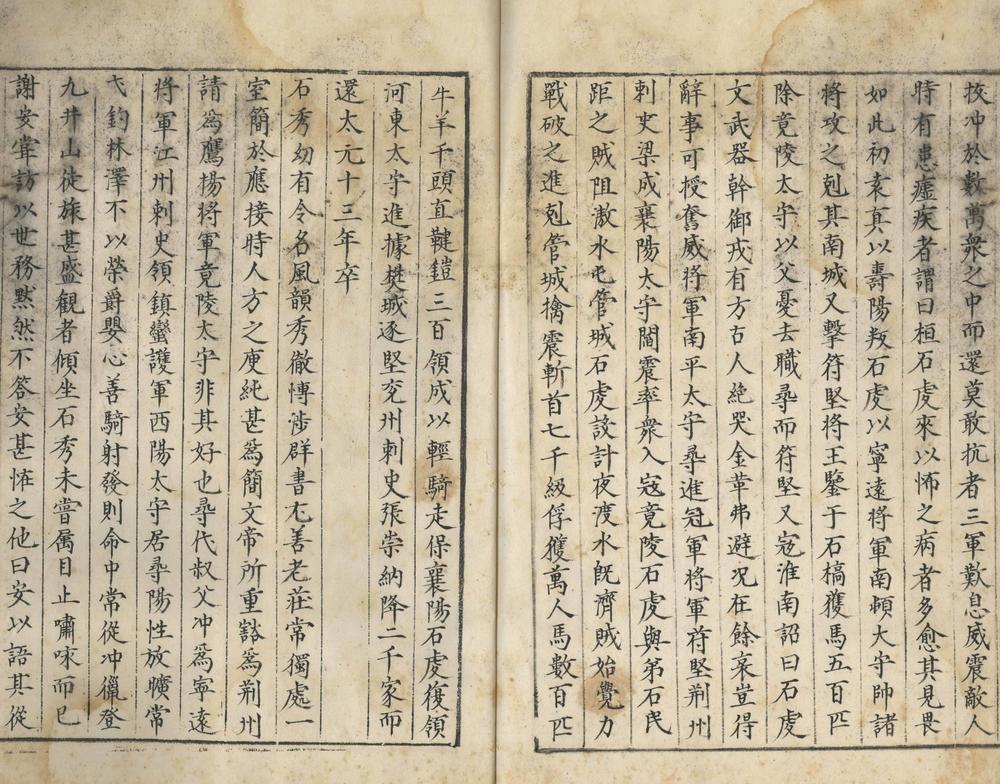 拔冲於數萬衆之中而還莫敢抗者三軍歎息威震敵人
時有患瘧疾者謂曰桓石虔來以怖之病者多愈其見畏
如此初袁真以壽陽叛石虔以寧遠將軍南頓大守帥諸
將攻之剋其南城又擊苻堅將王鑒于石橋獲馬五百匹
除竟陵太守以父憂去職尋而苻堅又寇淮南詔曰石虔
文武器幹御戎有方古人絶哭金革弗避况在餘哀豈得
辭事可授奮威將軍南平太守尋進冠軍將軍苻堅荆州
刺史梁成襄陽太守閻震率衆入寇竟陵石虔與弟石民
距之賊阻激水屯管城石虔設計夜渡水旣濟賊始覺力
戰破之進剋管城擒震斬首七千級俘獲萬人馬數百匹
牛羊千頭直鞬鎧三百領成以輕騎走保襄陽石虔復領
河東太守進據樊城逐堅兖州刺史張崇納降二千家而
還太元十三年卒
石秀幼有令名風韻秀徹愽涉群書尤善老莊常獨處一
室簡於應接時人方之庾純甚爲簡文帝所重豁爲荆州
請爲鷹揚將軍竟陵太守非其好也尋代叔父冲爲寧遠
將軍江州刺史領鎮蠻護軍西陽太守居尋陽性放曠常
弋釣林澤不以榮爵嬰心善騎射發則命中常從冲獵登
九井山徒旅甚盛観者傾坐石秀未嘗屬目止嘯咏而已
謝安甞訪以世務默然不答安甚恠之他日安以語其從